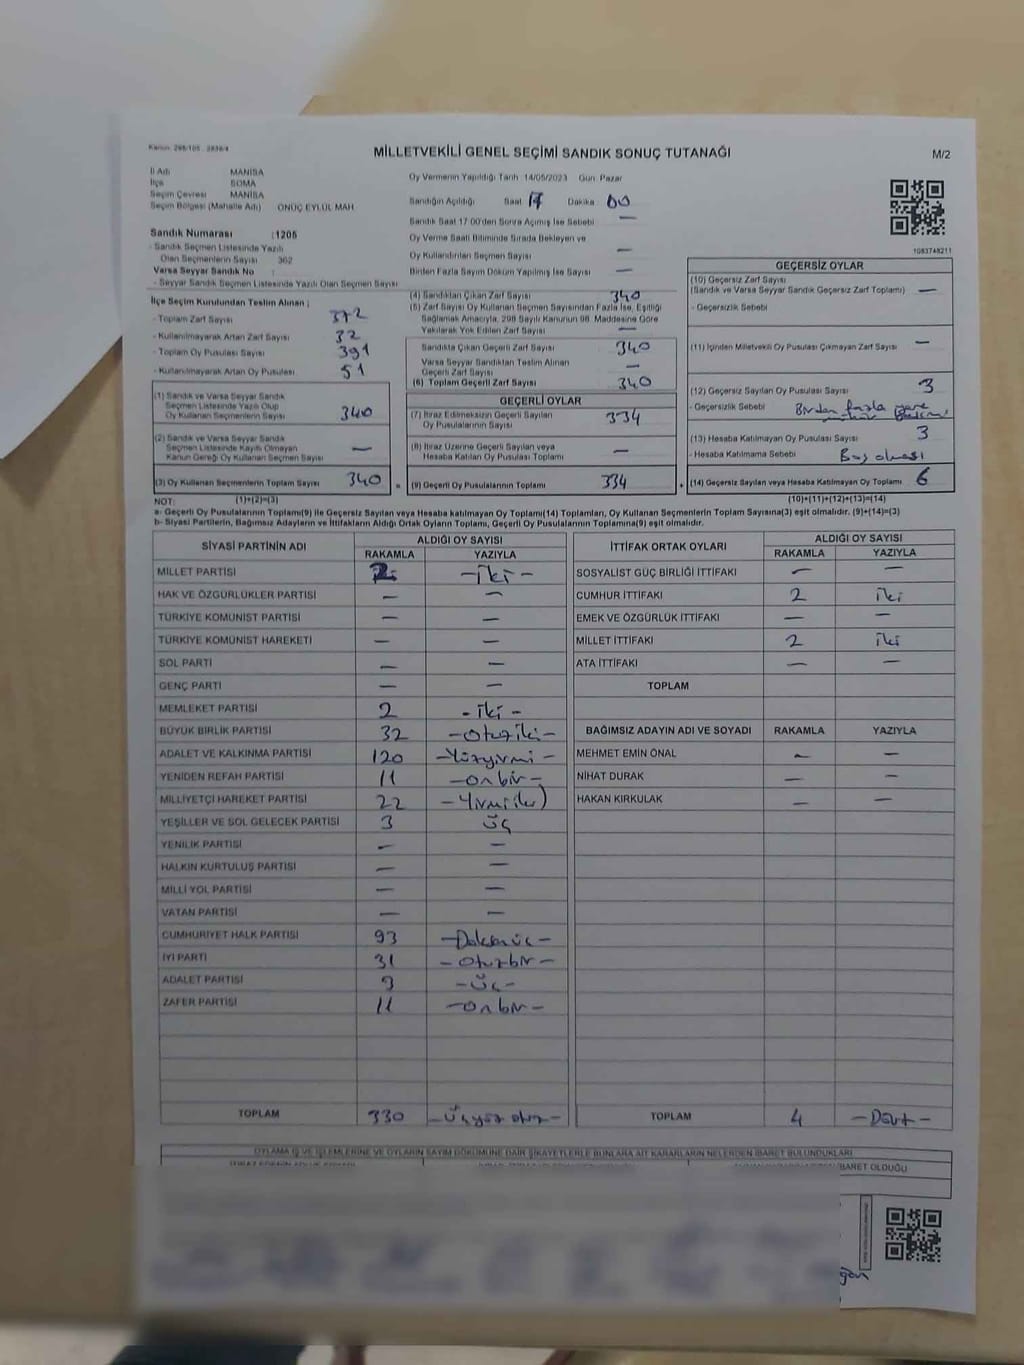 Kanun: 298/105 - 2839/4
MİLLETVEKİLİ GENEL SEÇİMİ SANDIK SONUÇ TUTANAĞI
M/2
İl Adı MANİSA
İlçe SOMA
Seçim Çevresi MANİSA
Seçim Bölgesi (Mahalle Adı) ONÜÇ EYLÜL MAH.
Sandık Numarası :1205
- Sandık Seçmen Listesinde Yazılı
Olan Seçmenlerin Sayısı 362
Varsa Seyyar Sandık No :
- Seyyar Sandık Seçmen Listesinde Yazılı Olan Seçmen Sayısı
Oy Vermenin Yapıldığı Tarih :14/05/2023 Gün: Pazar
Sandığın Açıldığı Saat 17 Dakika 00
Sandık Saat 17:00'den Sonra Açımış İse Sebebi —
Oy Verme Saati Bitiminde Sırada Bekleyen ve
Oy Kullandırılan Seçmen Sayısı —
Birden Fazla Sayım Döküm Yapılmış İse Sayısı —
1083748211
İlçe Seçim Kurulundan Teslim Alınan :
- Toplam Zarf Sayısı 372
- Kullanılmayarak Artan Zarf Sayısı 32
- Toplam Oy Pusulası Sayısı 391
- Kullanılmayarak Artan Oy Pusulası 51
(1) Sandık ve Varsa Seyyar Sandık
Seçmen Listesinde Yazılı Olup
Oy Kullanan Seçmenlerin Sayısı 340
(2) Sandık ve Varsa Seyyar Sandık
Seçmen Listesinde Kayıtlı Olmayan
Kanun Gereği Oy Kullanan Seçmen Sayısı —
(3) Oy Kullanan Seçmenlerin Toplam Sayısı 340
(1)+(2)=(3)
(4) Sandıktan Çıkan Zarf Sayısı 340
(5) Zarf Sayısı Oy Kullanan Seçmen Sayısından Fazla İse, Eşitliği
Sağlamak Amacıyla, 298 Sayılı Kanunun 98. Maddesine Göre
Yakılarak Yok Edilen Zarf Sayısı —
Sandıkta Çıkan Geçerli Zarf Sayısı 340
Varsa Seyyar Sandıktan Teslim Alınan
Geçerli Zarf Sayısı —
(6) Toplam Geçerli Zarf Sayısı 340
GEÇERLİ OYLAR
(7) İtiraz Edilmeksizin Geçerli Sayılan
Oy Pusulalarının Sayısı 334
(8) İtiraz Üzerine Geçerli Sayılan veya
Hesaba Katılan Oy Pusulası Toplamı —
= (9) Geçerli Oy Pusulalarının Toplamı 334
GEÇERSİZ OYLAR
(10) Geçersiz Zarf Sayısı
(Sandık ve Varsa Seyyar Sandık Geçersiz Zarf Toplamı) —
- Geçersizlik Sebebi
(11) İçinden Milletvekili Oy Pusulası Çıkmayan Zarf Sayısı —
(12) Geçersiz Sayılan Oy Pusulası Sayısı 3
- Geçersizlik Sebebi Birden fazla yere
(13) Hesaba Katılmayan Oy Pusulası Sayısı 3
- Hesaba Katılmama Sebebi Boş olması
+ (14) Geçersiz Sayılan veya Hesaba Katılmayan Oy Toplamı 6
(10)+(11)+(12)+(13)=(14)
NOT:
a- Geçerli Oy Pusulalarının Toplamı(9) ile Geçersiz Sayılan veya Hesaba katılmayan Oy Toplamı(14) Toplamları, Oy Kullanan Seçmenlerin Toplam Sayısına(3) eşit olmalıdır. (9)+(14)=(3)
b- Siyasi Partilerin, Bağımsız Adayların ve İttifakların Aldığı Ortak Oyların Toplamı, Geçerli Oy Pusulalarının Toplamına(9) eşit olmalıdır.
SİYASİ PARTİNİN ADI ALDIĞI OY SAYISI
RAKAMLA YAZIYLA
MİLLET PARTİSİ 2 -iki-
HAK VE ÖZGÜRLÜKLER PARTİSİ — —
TÜRKİYE KOMÜNİST PARTİSİ — —
TÜRKİYE KOMÜNİST HAREKETİ — —
SOL PARTİ — —
GENÇ PARTİ — —
MEMLEKET PARTİSİ 2 -iki-
BÜYÜK BİRLİK PARTİSİ 32 -Otuziki-
ADALET VE KALKINMA PARTİSİ 120 -Yüzyirmi-
YENİDEN REFAH PARTİSİ 11 -onbir-
MİLLİYETÇİ HAREKET PARTİSİ 22 -Yirmiiki)
YEŞİLLER VE SOL GELECEK PARTİSİ 3 üç
YENİLİK PARTİSİ — —
HALKIN KURTULUŞ PARTİSİ — —
MİLLİ YOL PARTİSİ — —
VATAN PARTİSİ — —
CUMHURİYET HALK PARTİSİ 93 -Doksanüç-
İYİ PARTİ 31 -Otuzbir-
ADALET PARTİSİ 3 -Üç-
ZAFER PARTİSİ 11 -Onbir-
TOPLAM 330 -Üçyüz otuz-
İTTİFAK ORTAK OYLARI ALDIĞI OY SAYISI
RAKAMLA YAZIYLA
SOSYALİST GÜÇ BİRLİĞİ İTTİFAKI — —
CUMHUR İTTİFAKI 2 iki
EMEK VE ÖZGÜRLÜK İTTİFAKI — —
MİLLET İTTİFAKI 2 iki
ATA İTTİFAKI — —
TOPLAM
BAĞIMSIZ ADAYIN ADI VE SOYADI RAKAMLA YAZIYLA
MEHMET EMİN ÖNAL — —
NİHAT DURAK — —
HAKAN KIRKULAK — —
TOPLAM 4 -Dört-
OYLAMA İŞ VE İŞLEMLERİNE VE OYLARIN SAYIM DÖKÜMÜNE DAİR ŞİKAYETLERLE BUNLARA AİT KARARLARIN NELERDEN İBARET BULUNDUKLARI
İBARET OLDUĞU